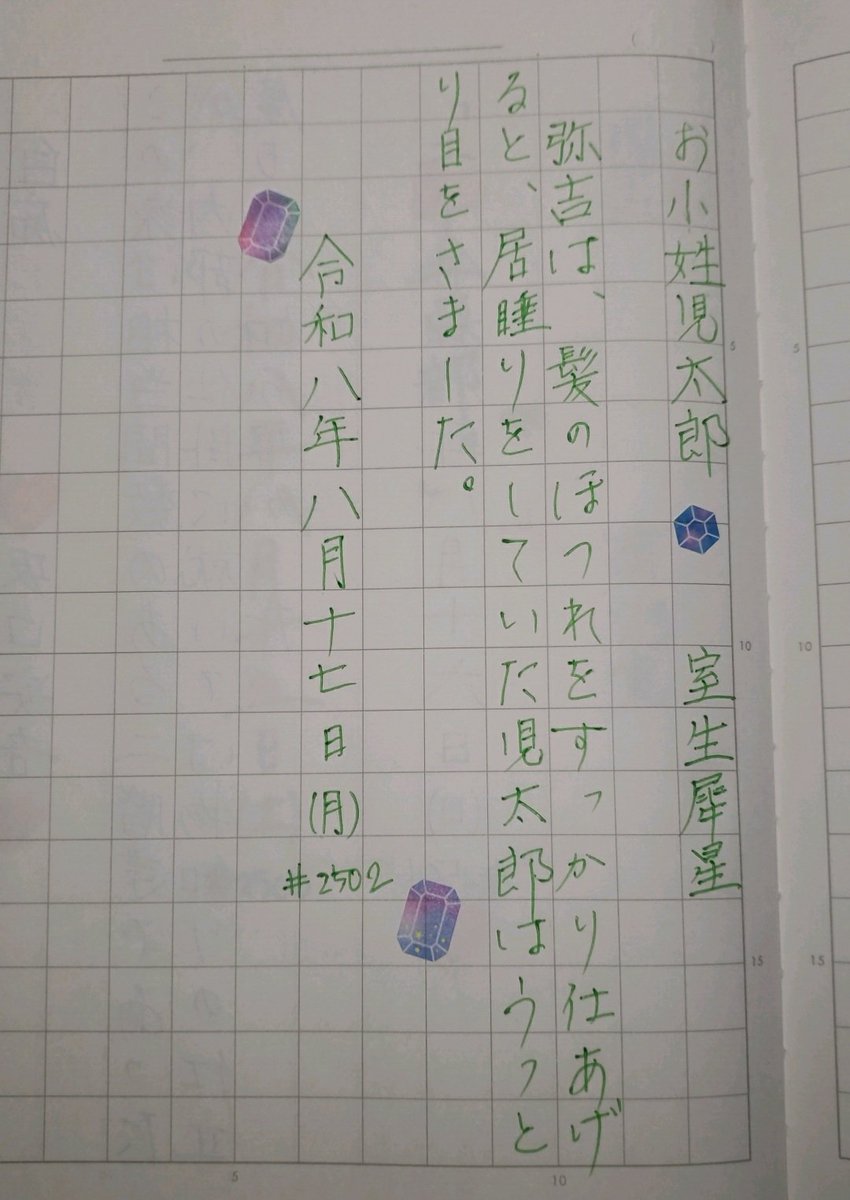 お小姓児太郎 室生犀星
弥吉は、髪のほつれをすっかり仕あげ
ると、居睡りをしていた児太郎はうっと
り目をさました。
令和八年八月十七日(月)
#2502
5
10
15
5
10
15
5
10